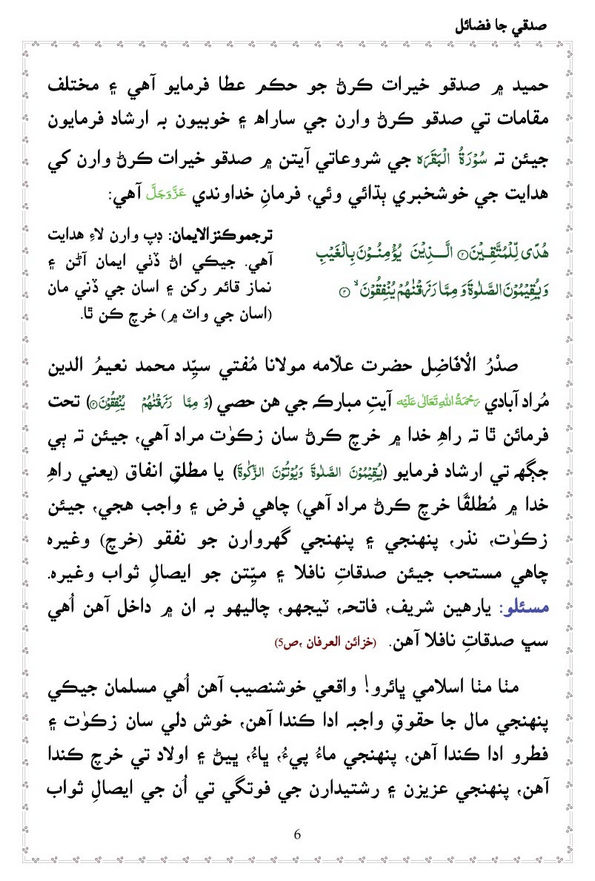 صدقي جا فضائل
حميد ۾ صدقو خيرات ڪرڻ جو حڪم عطا فرمايو آهي ۽ مختلف
مقامات تي صدقو ڪرڻ وارن جي ساراهه ۽ خوبيون به ارشاد فرمايون
جيئن ته سُوْرَةُ الْبَقَرَه جي شروعاتي آيتن ۾ صدقو خيرات ڪرڻ وارن کي
هدايت جي خوشخبري ٻڌائي وئي، فرمانِ خداوندي عَزَّوَجَلَّ آهي:
هُدًى لِّلْمُتَّقِيْنَ ۙ﴿۲﴾ الَّذِيْنَ يُؤْمِنُوْنَ بِالْغَيْبِ
وَيُقِيْمُوْنَ الصَّلٰوةَ وَ مِمَّا رَزَقْنٰهُمْ يُنْفِقُوْنَ ۙ﴿۳﴾
ترجموڪنزالايمان: ڊپ وارن لاءِ هدايت
آهي. جيڪي اڻ ڏٺي ايمان آڻن ۽
نماز قائم رکن ۽ اسان جي ڏني مان
(اسان جي واٽ ۾) خرچ ڪن ٿا.
صدْرُ الْاَفَاضِل حضرت علّامه مولانا مُفتي سيِّد محمد نعيمُ الدين
مُراد آبادي رَحْمَةُ اللهِ تَعَالٰی عَلَيْه آيتِ مبارڪ جي هن حصي (وَ مِمَّا رَزَقْنٰهُمْ يُنْفِقُوْنَ) تحت
فرمائن ٿا ته راهِ خدا ۾ خرچ ڪرڻ سان زڪوٰت مراد آهي، جيئن ته ٻي
جڳهه تي ارشاد فرمايو (يُقِيْمُوْنَ الصَّلٰوةَ وَيُؤْتُوْنَ الزَّكٰوةَ) يا مطلقِ انفاق (يعني راهِ
خدا ۾ مُطلقًا خرچ ڪرڻ مراد آهي) چاهي فرض ۽ واجب هجي، جيئن
زڪوٰت، نذر، پنهنجي ۽ پنهنجي گهروارن جو نفقو (خرچ) وغيره
چاهي مستحب جيئن صدقاتِ نافلا ۽ ميِّتن جو ايصالِ ثواب وغيره.
مسئلو: يارهين شريف، فاتحه، ٽيجهو، چاليهو به ان ۾ داخل آهن اُهي
سڀ صدقاتِ نافلا آهن. (خزائن العرفان ،ص5)
مٺا مٺا اسلامي ڀائرو! واقعي خوشنصيب آهن اُهي مسلمان جيڪي
پنهنجي مال جا حقوقِ واجبه ادا ڪندا آهن، خوش دلي سان زڪوٰت ۽
فطرو ادا ڪندا آهن، پنهنجي ماءُ پيءُ، ڀاءُ، ڀيڻ ۽ اولاد تي خرچ ڪندا
آهن، پنهنجي عزيزن ۽ رشتيدارن جي فوتگي تي اُن جي ايصالِ ثواب
6